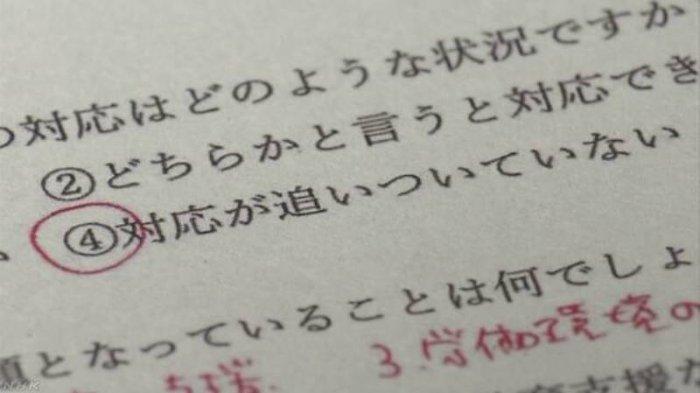 対応はどのような状況ですか
②どちらかと言うと対応でき
④対応が追いついていない
題となっていることは何でしょ
3.
支援
NHK